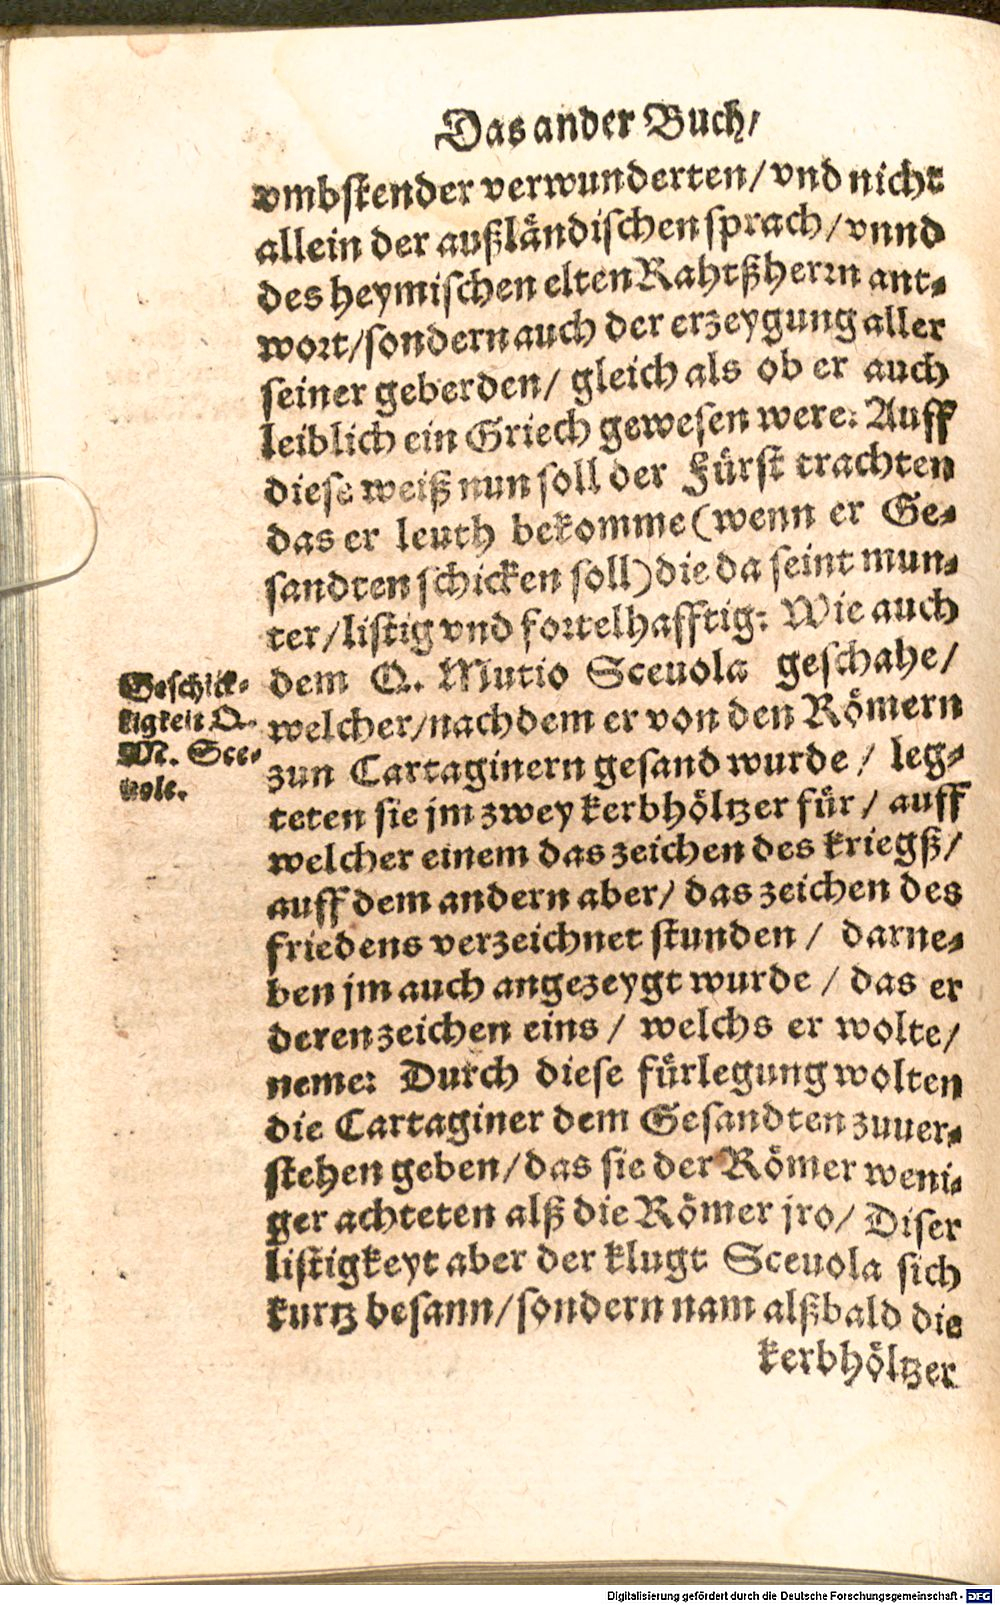 Das ander Buch/
vmbstender verwunderten/ vnd nicht
allein der außländischen sprach/ vnnd
des heymischen elten Rahtßherrn ant-
wort/ sondern auch der erzeygung aller
seiner geberden/ gleich als ob er auch
leiblich ein Griech gewesen were: Auff
diese weiß nun soll der Fürst trachten
das er leuth bekomme (wenn er Ge-
sandten schicken soll) die da seint mun-
ter/ listig vnd fortelhafftig: Wie auch
dem Q. Mutio Sceuola geschahe/
welcher/ nach dem er von den Römern
zun Cartaginern gesand wurde/ leg-
teten sie jm zwey kerbhöltzer für/ auff
welcher einem das zeichen des kriegß/
auff dem andern aber/ das zeichen des
friedens verzeichnet stunden/ darne-
ben jm auch angezeygt wurde/ das er
deren zeichen eins/ welchs er wolte/
neme: Durch diese fürlegung wolten
die Cartaginer dem Gesandten zuuer-
stehen geben/ das sie der Römer weni-
ger achteten alß die Römer jro/ Diser
listigkeyt aber der klugt Sceuola sich
kurtz besann/ sondern nam alßbald die
kerbhöltzer
Geschick-
ligkeit Q.
M. Sce-
uole.
Digitalisierung gefördert durch die Deutsche Forschungsgemeinschaft - DFG